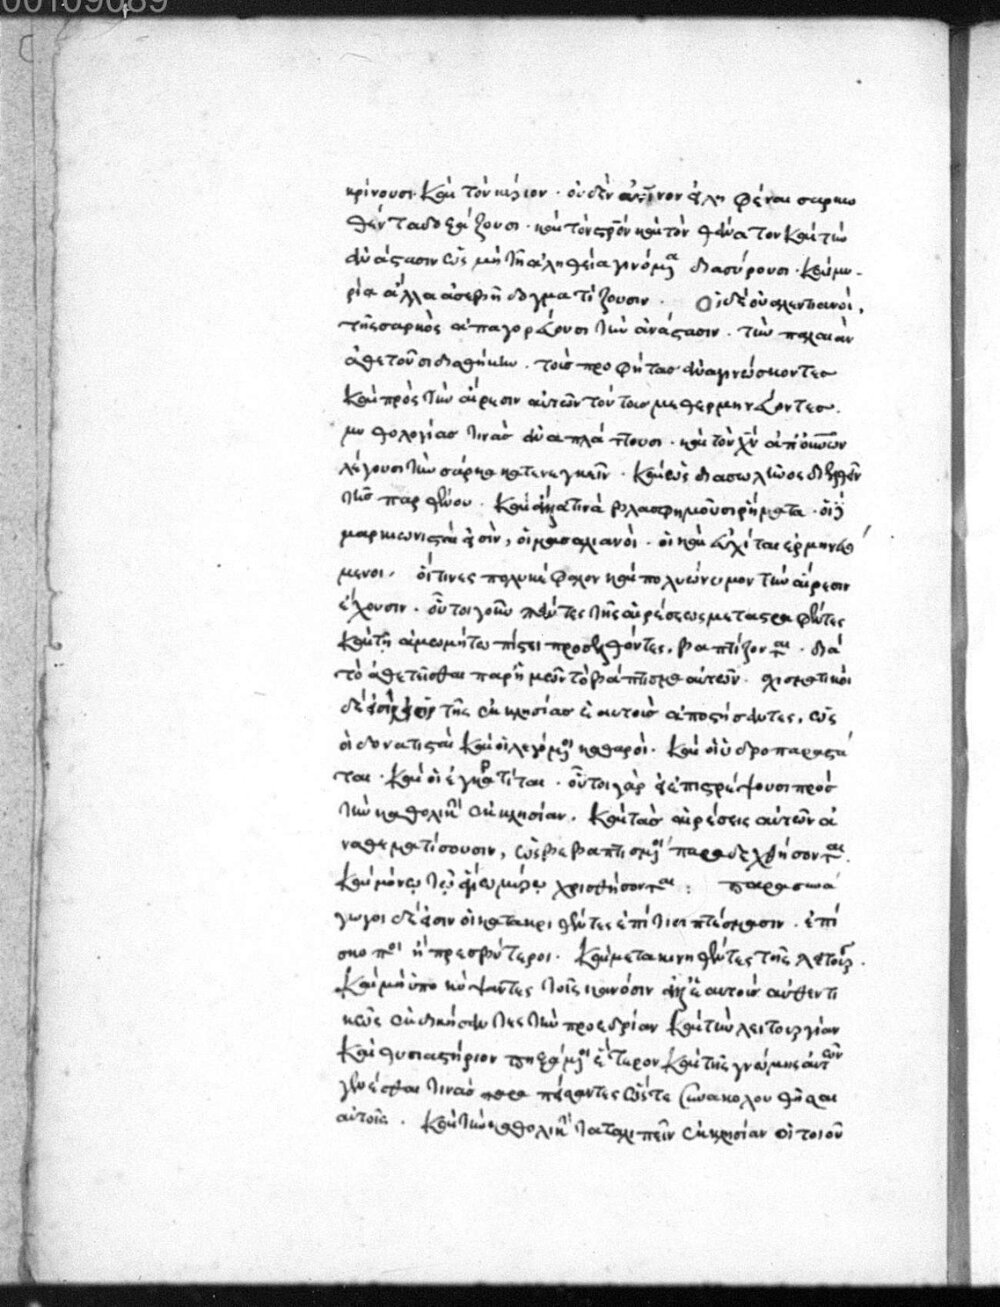 00109089
κρίνουσι· καὶ τὸν κύριον· οὐδὲν ἀνθρώπινον εἰληφέναι σαρκω
θέντα δοξάζουσι· καὶ τὸν στρὸν καὶ τὸν θάνατον καὶ τὴν
ἀνάστασιν ὡς μὴ τῇ ἀληθεία γινόμενα διασύρουσι· καὶ μυ-
ρία ἄλλα ἀσεβῆ δογματίζουσιν· Οἱ δὲ οὐαλεντιανοὶ,
τῆς σαρκὸς ἀπαγορεύουσι τὴν ἀνάστασιν· τὴν παλαιὰν
ἀθετοῦσι διαθήκην· τοὺς προφήτας ἀναγινώσκοντες
καὶ πρὸς τὴν αἵρεσιν αὐτῶν τούτους μεθερμηνεύοντες·
μυθολογίας τινὰς ἀναπλάττουσι· καὶ τὸν χν ἀπ' οὐνῶν
λέγουσι τὴν σάρκα κατενεγκεῖν· καὶ ὡς διασωλῆνος διελθεῖν
τῆς παρθένου· καὶ ἄλλα τινὰ βλασφημοῦσι ῥήματα· οἱ
μαρκιωνισταὶ εἰσὶν, οἱ μασαλιανοὶ· οἱ καὶ εὐχίται ἑρμηνευό
μενοι· οἵτινες πολυκέφαλον καὶ πολυώνυμον τὴν αἵρεσιν
ἔχουσιν· οὗτοι γοῦν πάντες τῆς αἱρέσεως μεταστραφέντες
καὶ τῆ ἀμωμήτω πίστει προσελθόντες, βαπτίζονται· διὰ
τὸ ἀθετεῖσθαι παρ' ἡμῶν τὸ βάπτισμα αὐτῶν· σχισματικοὶ
δέ εἰσιν τῆς ἐκκλησίας ἑαυτοὺς ἀποστήσαντες, ὡς
οἱ δονατισταὶ καὶ οἱ λεγόμενοι καθαροὶ· καὶ οἱ ὑδροπαραστά
ται· καὶ οἱ ἐγκρατῖται· οὗτοι γὰρ εἰ ἐπιστρέψουσι πρὸς
τὴν καθολικὴν ἐκκλησίαν, καὶ τὰς αἱρέσεις αὐτῶν ἀ
ναθεματίσουσιν, ὡς βεβαπτισμένοι παραδεχθήσονται.
καὶ μόνω τῷ ἁγίω μύρω χρισθήσονται: παρασυνά
γωγοι δέ εἰσιν οἱ κατακριθέντες ἐπί τισι πταίσμασιν· ἐπί
σκοποι ἢ πρεσβύτεροι· καὶ μετακινηθέντες τῆς λειτουργίας.
καὶ μὴ ὑποκύψαντες τοῖς κανόσιν ἀλλ' ἑαυτοὺς αὐθεντι
κῶς ἐκδικήσαντες τὴν προεδρίαν καὶ τὴν λειτουργίαν
καὶ θυσιαστήριον πηξάμενοι ἕτερον καὶ τῆς γνώμης αὐτῶν
γενέσθαι τινὰς παραπείσαντες ὥστε συνακολουθῆσαι
αὐτοῖς· καὶ τὴν καθολικὴν καταλιπεῖν ἐκκλησίαν οἱ τοιοῦ